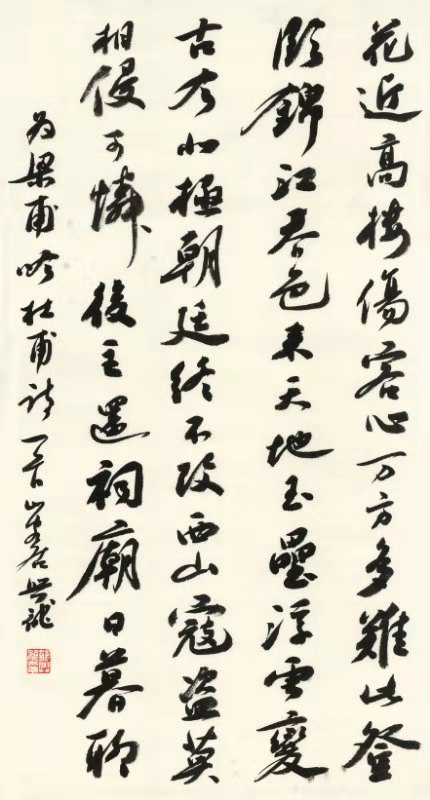 花近高樓傷客心万方多難此登
臨錦江春色来天地玉壘浮雲變
古今北極朝廷終不改西山寇盗莫
相侵可憐後主還祠廟日暮聊
為梁甫吟杜甫詩一首